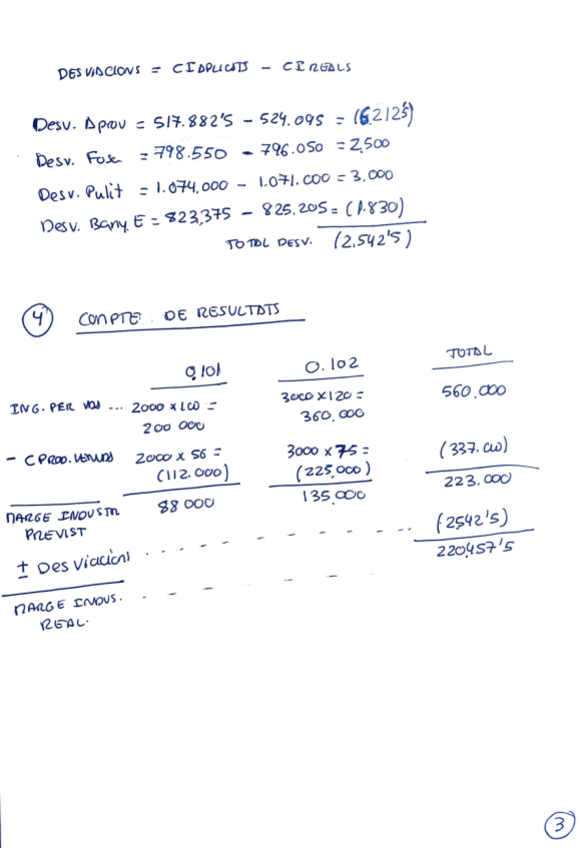 DESVIACIONS = CI APLICATS - CI REALS
Desv. Aprov = 517.882'5 - 524.095 = (6.212'5)
Desv. Fose = 798.550 - 796.050 = 2,500
Desv. Pulit = 1.074,000 - 1.071.000 = 3.000
Desv. Bany E = 823,375 - 825.205 = (1.830)
TOTAL DESV. (2.542'5)
4 COMPTE DE RESULTATS
0.101 0.102 TOTAL
ING. PER VDA ... 2000 x 100 = 3000 x 120 = 560.000
200 000 360.000
- C PROD. VENUDS 2000 x 56 = 3000 x 75 = (337.000)
(112.000) (225,000) 223.000
MARGE INDUSTR 88 000 135,000
PREVIST
± Desviacions (2542'5)
220,457'5
MARGE INDUS.
REAL.
3